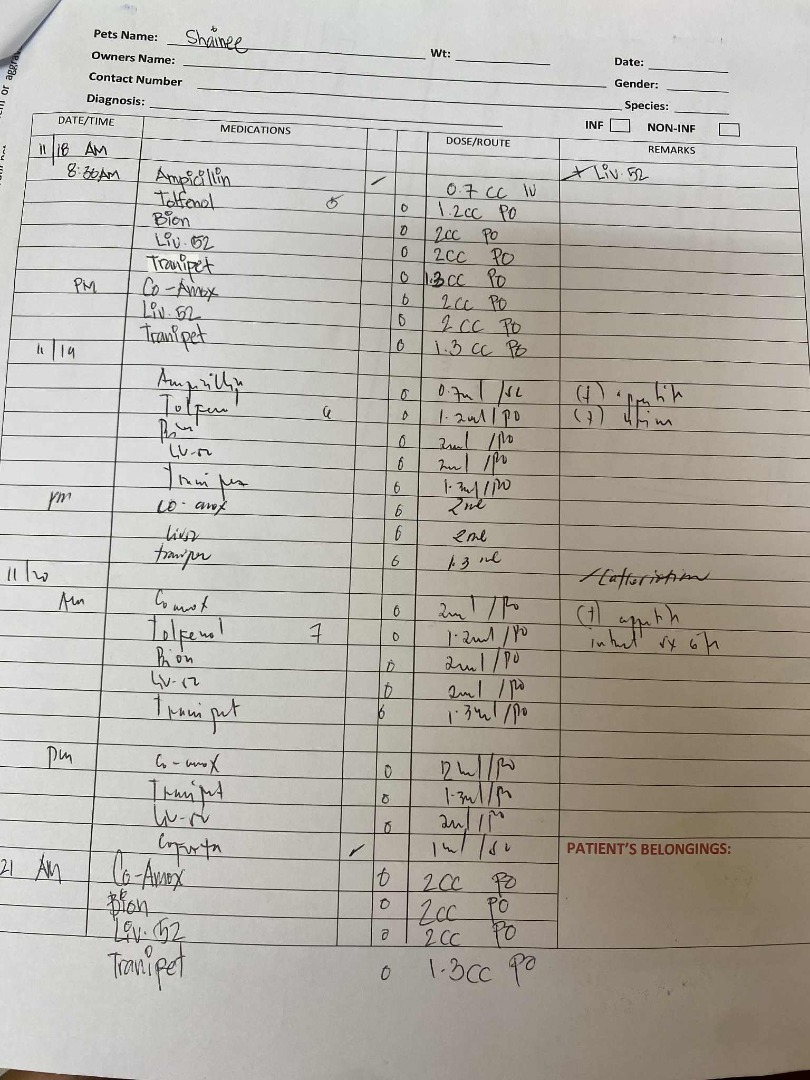 Pets Name: Shainee Wt: Date:
Owners Name: Gender:
Contact Number Species:
Diagnosis: INF NON-INF
DATE/TIME MEDICATIONS DOSE/ROUTE REMARKS
11/18 AM
8:30AM Ampicillin ✓ 0.7 cc IV * Liv. 52
Tolfenol 5 0 1.2cc PO
Bion 0 2cc PO
Liv. 52 0 2cc PO
Tranipet 0 1.3cc PO
PM Co-Amox 0 2cc PO
Liv. 52 0 2cc PO
Tranipet 0 1.3 cc PO
11/19
Ampicillin 0 0.7ml / (+)
Tolfenol 6 0 1.2ml / PO (+)
Bion 0 2ml / PO
Liv-52 6 2ml / PO
Tranipet 6 1.3ml / PO
pm co-amox 6 2ml
liv52 6 2ml
tranipet 6 1.3 ml
11/20
Am Comox 0 2ml / PO (+)
Tolfenol 7 0 1.2ml / PO
Bion 0 2ml / PO
Liv-52 0 2ml / PO
Tranipet 6 1.3ml / PO
pm Co-amox 0 / PO
Tranipet 0 1.3ml / PO
Liv-52 0 2ml / PO
✓ 1ml /
PATIENT'S BELONGINGS:
21 AM Co-Amox 0 2cc PO
Bion 0 2cc PO
Liv. 52 0 2cc PO
Tranipet 0 1.3cc PO